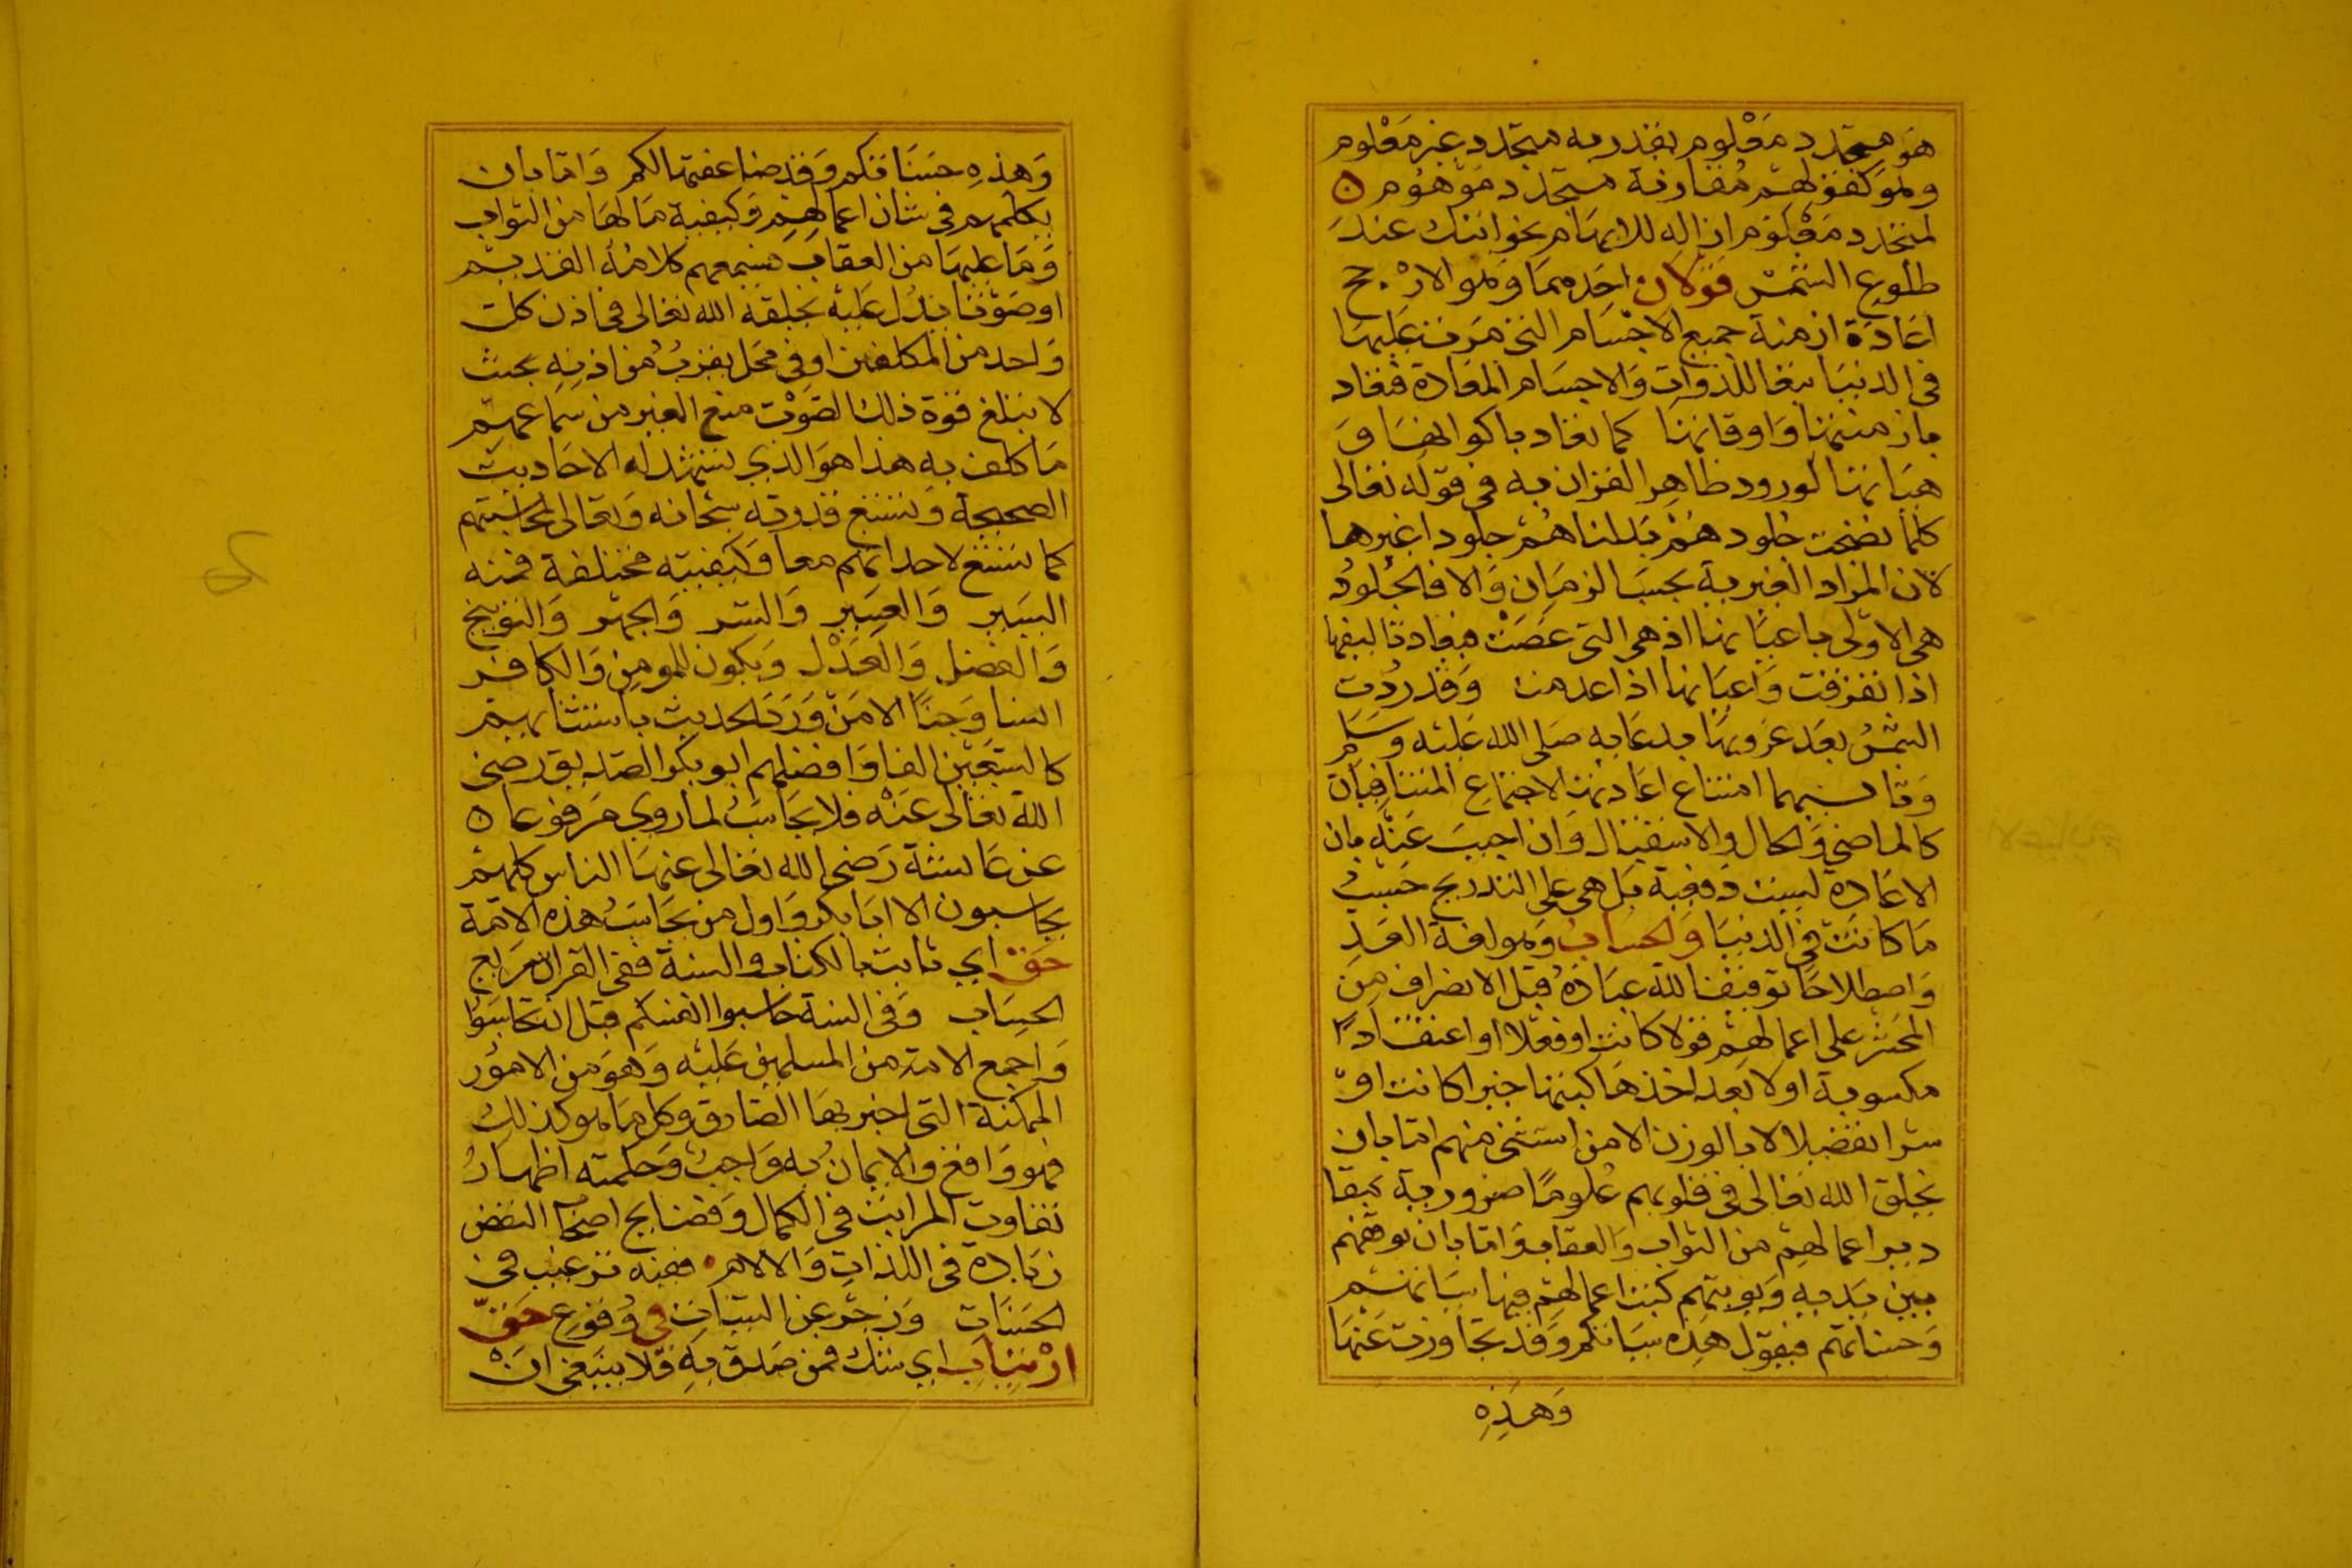 هو متجدد معلوم يقدر به متجدد غير معلوم
ولموكفولهم مقارنة متجدد موهوم
لمتجدد معلوم ازالة للابهام نحو اتيتك عند
طلوع الشمس قولان احدهما وهو الارجح
اعادة ازمنة جميع الاجسام التي مرت عليها
في الدنيا تبعا للذوات والاجسام المعادة فتعاد
بازمنتها واوقاتها كما تعاد باكوانها و
هيآتها لورود ظاهر القران به في قوله تعالى
كلما نضجت جلودهم بدلناهم جلودا غيرها
لان المراد الغيرية بحسب الزمان والا فالجلود
هي الاولى باعيانها اذ هي التي عصت فيعاد تاليفها
اذا تفرقت واعيانها اذا عدمت وقد ردت
الشمس بعد غروبها بدعايه صلى الله عليه وسلم
وثانيهما امتناع اعادتها لاجتماع المتنافيات
كالماضي والحال والاستقبال وان اجيب عنه بان
الاعادة ليست دفعية بل هي على التدريج حسب
ما كانت في الدنيا والحساب وهو لغة العد
واصطلاحا توقيف الله عباده قبل الانصراف من
المحشر على اعمالهم قولا كانت او فعلا او اعتقادا
مكسوبة اولا بعد اخذها كتبها خيرا كانت او
شرا تفصيلا لا بالوزن الا من استثنى منهم اما بان
يخلق الله تعالى في قلوبهم علوما ضرورية بمقا
دير اعمالهم من الثواب والعقاب واما بان يوقفهم
بين يديه ويوتيهم كتب اعمالهم فيها سيآتهم
وحسناتهم فيقول هذه سيآتكم وقد تجاوزت عنها
وهذه
وهذه حسناتكم وقد ضاعفتها لكم واما بان
يكلمهم في شان اعمالهم وكيفية ما لها من الثواب
وما عليها من العقاب فيسمعهم كلامه القديم
او صوتا يدل عليه يخلقه الله تعالى في اذن كل
واحد من المكلفين او في محل يقرب من اذنه بحيث
لا تبلغ قوة ذلك الصوت منع الغير من سماعهم
ما كلف به هذا هو الذي تشهد له الاحاديث
الصحيحة وتتسع قدرته سبحانه وتعالى لمحاسبتهم
كما تتسع لاحداثهم معا وكيفيته مختلفة فمنه
اليسير والعسير والسر والجهر والتوبيخ
والفضل والعدل ويكون للمومن والكافر
انسا وجنا الا من ورد الحديث باستثنايهم
كالسبعين الفا وافضلهم ابو بكر الصديق رضي
الله تعالى عنه فلا يحاسب لما روي مرفوعا
عن عائشة رضي الله تعالى عنها الناس كلهم
يحاسبون الا ابا بكر واول من يحاسب هذه الامة
حق اي ثابت بالكتاب والسنة ففي القرآن سريع
الحساب وفي السنة حاسبوا انفسكم قبل ان تحاسبوا
واجمع الامة من المسلمين عليه وهو من الامور
الممكنة التي اخبر بها الصادق وكل ما هو كذلك
فهو واقع والايمان به واجب وحكمته اظهار
تفاوت المراتب في الكمال وفضايح اصحاب النقص
زيادة في اللذات والآلام ففيه ترغيب في
الحسنات وزجر عن السيآت في وقوع حق
ارتياب اي شك فمن صدق به فلا ينبغي ان